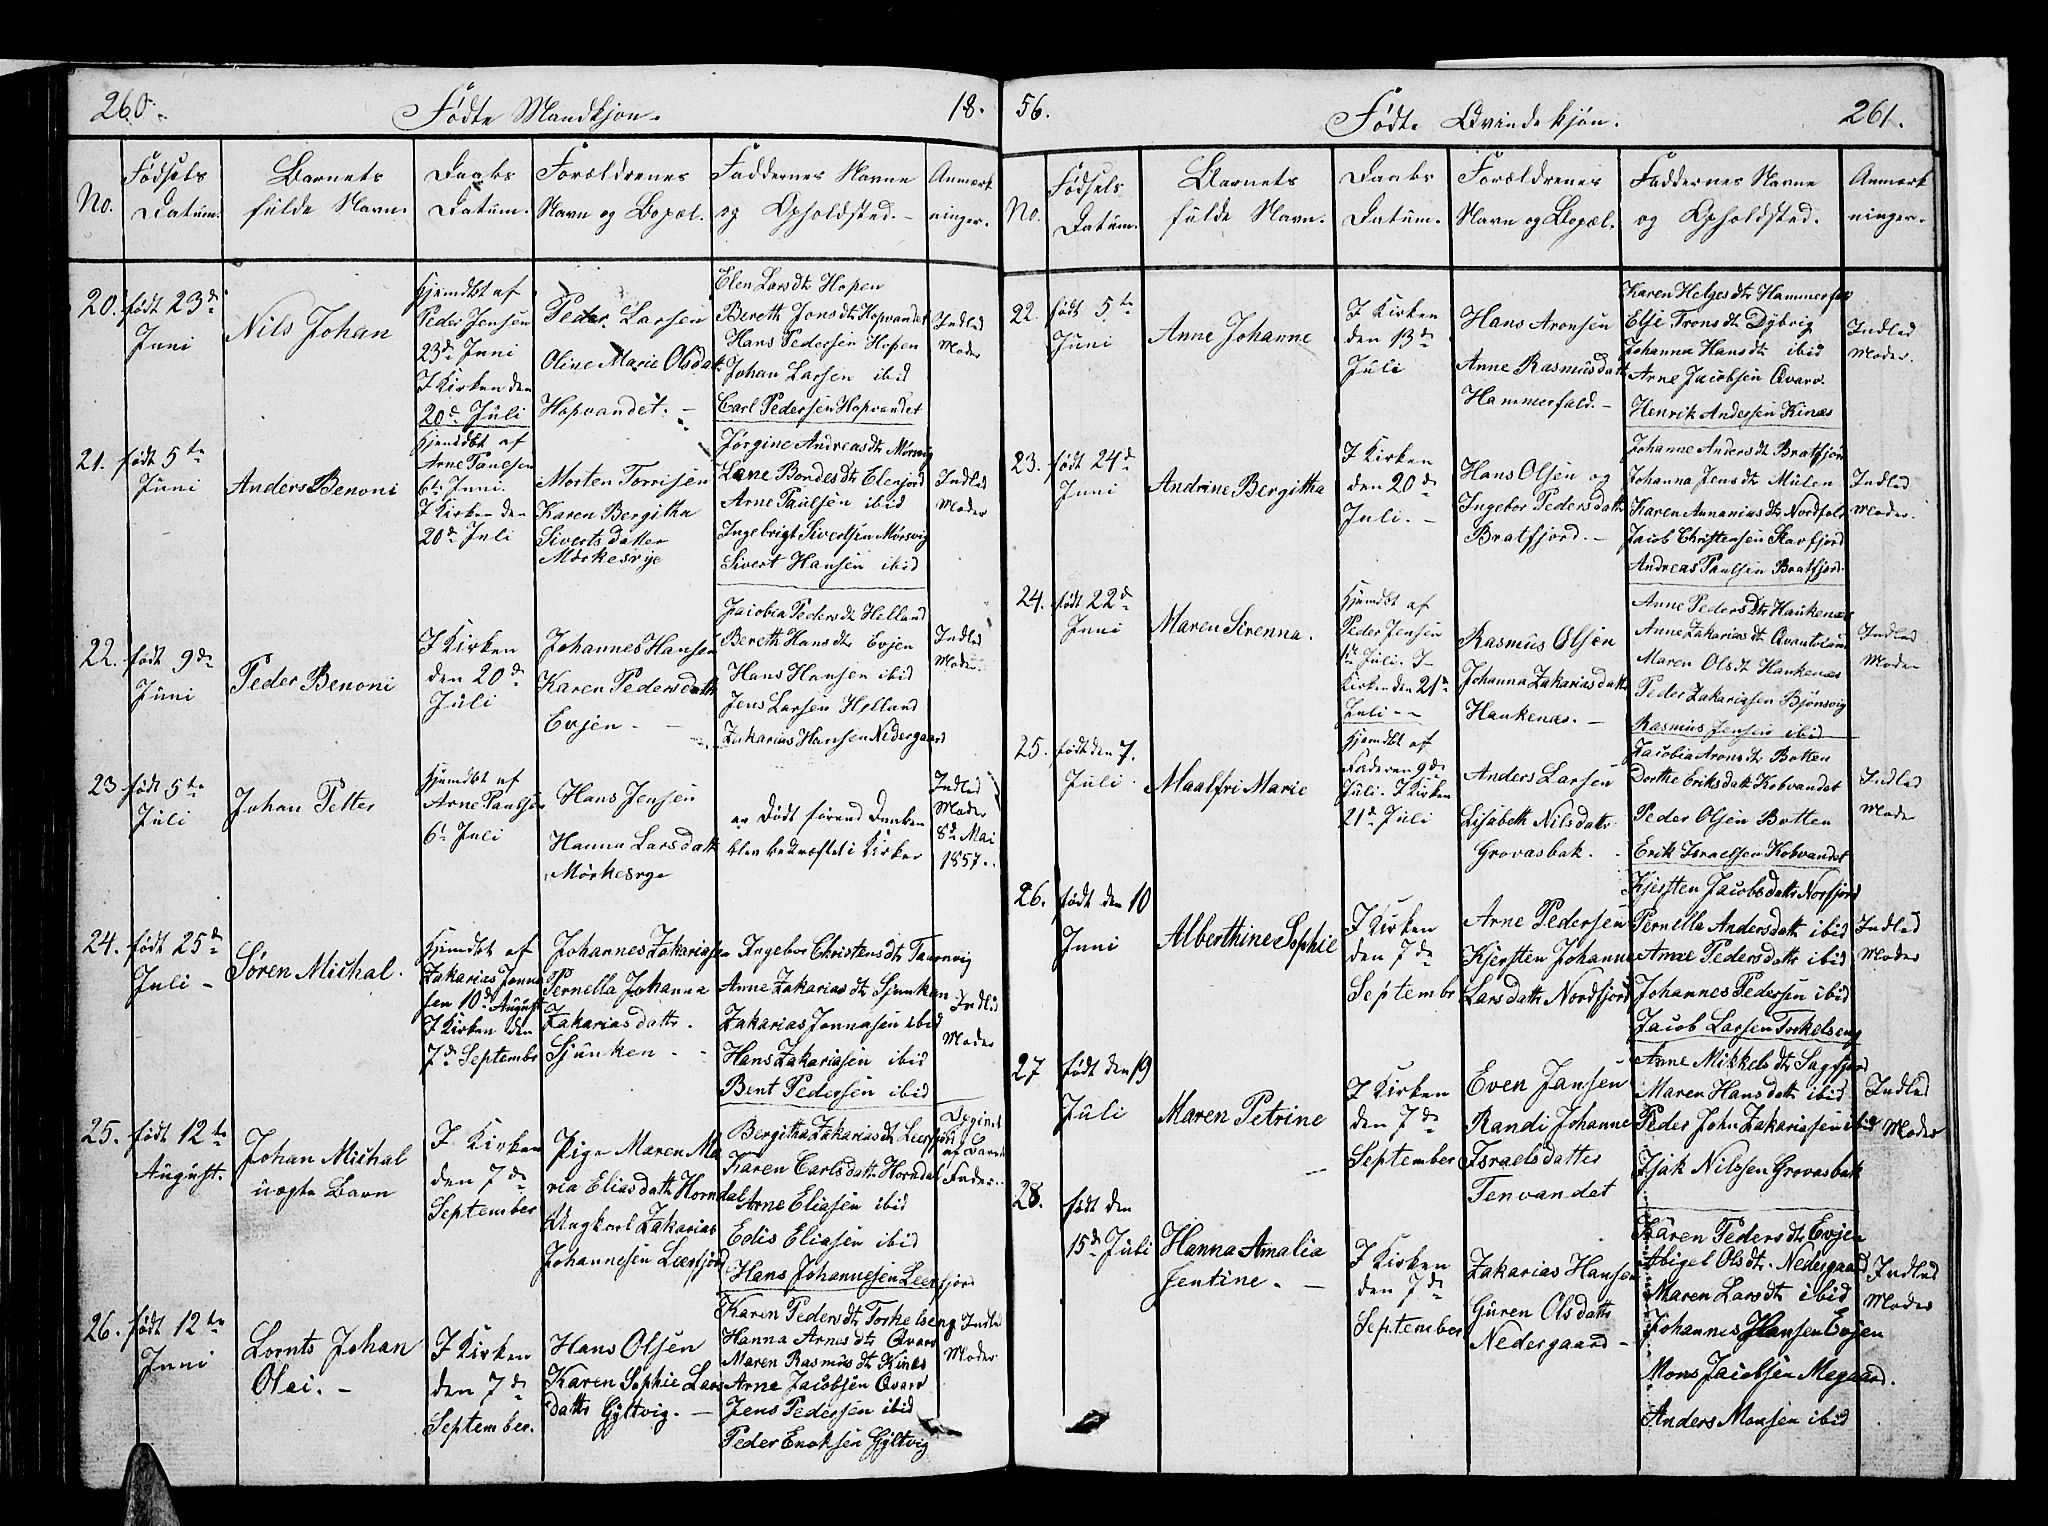 260.
Födte Mandkjön.
18.
No.
Födsels Datum.
Barnets fulde Navn.
Daabs Datum.
Forældrenes Navn og Bopæl.
Faddernes Navne og Opholdsted.
Anmærkninger.
20.
født 23de
Juni
Nils Johan
Hjemdbt af
Peder Jensen
23de Juni
I Kirken den
20de Juli
Peder Larsen
Oline Marie Olsdat
Hopvandet. -
Elen Larsdtr Hopen
Bereth Jonsdtr Hopvandet
Hans Pedersen Hopen
Johan Larsen ibid
Carl Pedersen Hopvandet
Indled
Moder
21.
født 5te
Juni
Anders Benoni
Hjemdbt af
Arne Paulsen
6te Juni
I Kirken den
20de Juli
Morten Torrisen
Karen Bergitha
Siverts datter
Mörkesrije
Jørgine Andreasdtr Mörsvig
Lene Bondesdtr Elenjord
Arne Paulsen ibid
Ingebrigt Sivertsen Mörsvig
Sivert Hansen ibid
Indled
Moder
22.
født 9de
Juni
Peder Benoni
I Kirken
den 20de
Juli
Johannes Hansen
Karen Pedersdattr
Evjen - -
Jacobia Pedersdtr Helland
Bereth Hansdtr Evjen
Hans Hansen ibid
Jens Larsen Helland
Zakarias Hansen Nedergaard
Indled
Moder
23
født 5te
Juli
Johan Petter
Hjemdbt af
Arne Paulsen
6te Juli
Hans Jensen
Hanna Larsdatter
Mörkesrye
er Dödt förend Daaben
blev bekræftet i Kirken
Indled
Moder
8de Mai
1857.
24.
født 25de
Juli -
Søren Michal.
Hjemdbt af
Zakarias Jonna
sen 10de August
I Kirken den
7de September
Johannes Zakariasen
Pernella Johanna
Zakariasdattr.
Sjunken - -
Ingebor Christensdtr Taarnvig
Anne Zakariasdtr Sjunken
Zakarias Jonnasen ibid
Hans Zakariasen ibid
Bent Pedersen ibid
Indled
Moder
25.
født 12te
August.
Johan Michal
uægte Barn
I Kirken
den 7de
September
Pige Maren Ma
ria Eliasdattr Horndal
Ungkarl Zakarias
Johannesen Leerfjord
Bergitha Zakariasdtr Leerfjord
Karen Carlsdattr Horndal
Arne Eliasen ibid
Edis Eliasen ibid
Hans Johannesen Leerfjord
Opgivet
af Barnets
Fader.
26.
født 12te
Juni
Lornts Johan
Olai. -
I Kirken
den 7de
September.
Hans Olsen
Karen Sophie Lars
dattr Gyltvig. -
Karen Pedersdtr Torkelseng
Hanna Arnesdtr Qvarv
Maren Rasmusdtr Kinæs
Arne Jacobsen Qvarv
Jens Pedersen ibid
Peder Enoksen Gyltvig
Indle
Moder
56.
Födte Qvindekjön.
261.
No.
Födsels Datum.
Barnets fulde Navn.
Daabs Datum.
Forældrenes Navn og Bopæl.
Faddernes Navne og Opholdsted.
Anmærkninger.
22.
født 5te
Juni
Anne Johanne
I Kirken
den 13de
Juli
Hans Aronsen
Anne Rasmusdatt
Hammerfald. -
Karen Helgesdtr Hammerfal
Else Tronsdtr Dybvig
Johanna Hansdtr ibid
Arne Jacobsen Qvarv.
Henrik Andersen Kinæs
Indled
Moder.
23.
født 24de
Juni
Andrine Bergitha
I Kirken
den 20de
Juli. -
Hans Olsen og
Ingebor Pedersdattr
Bratfjord. -
Johanne Andersdtr Bratfjord
Johanna Jensdtr Mülen
Karen Annaniasdtr Nordfold
Jacob Christensen Stavfjord
Andreas Paulsen Bratfjord.
Indled
Moder.
24.
født 22de
Juni
Maren Sirenna.
Hjemdbt af
Peder Jensen
1te Juli. I
Kirken den 21de
Juli - -
Rasmus Olsen
Johanna Zakariasdattr
Haukenæs. -
Anne Pedersdtr Haukenæs
Anne Zakariasdtr Qvantoland
Maren Olsdtr Haukenæs
Peder Zakariasen Bjønsvig
Rasmus Jensen ibid
Indled
Moder
25.
født den 7.
Juli.
Maalfri Marie
Hjemdbt af
Faderen 9de
Juli. I Kirken
21de Juli
Anders Larsen
Lisabeth Nilsdattr
Grovasbak. -
Jacobia Aronsdtr Botten
Dorthe Eriksdatt Kobvandet
Peder Olsen Botten
Erik Israelsen Kobvandet
Indled
Moder
26.
født den 10
Juni
Alberthine Sophie
I Kirken
den 7de
September
Arne Pedersen
Kjersten Johanne
Larsdattr Nordfjord
Kjersten Jacobsdattr Norfjord
Pernella Andersdattr ibid
Anne Pedersdattr ibid
Johannes Pedersen ibid
Jacob Larsen Torkelseng
Indled
Moder
27
født den 19
Juli
Maren Petrine
I Kirken
den 7de
September
Even Jansen
Randi Johanne
Israelsdatter
Tenvandet
Anne Mikkelsdtr Sagfjord
Maren Hansdattr ibid
Peder John Zakariasen ibid
Isak Nilssen Grovasbak
Indled
Moder
28.
født den
15de Juli
Hanna Amalia
Jentine. -
I Kirken
den 7de
September
Zakarias Hansen
Guren Olsdattr
Nedergaard -
Karen Pedersdtr Evjen
Abigel Olsdtr. Nedergaard
Maren Larsdtr ibid
Johannes Hansen Evjen
Mons Jacobsen Megaard.
Anders Monsen ibid
Indled
Moder